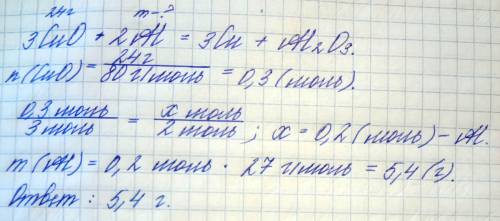 24г m-?
3CuO + 2Al = 3Cu + Al2O3.
n(CuO) = 24г / 80 г/моль = 0,3 (моль).
0,3 моль / 3 моль = x моль / 2 моль ; x = 0,2 (моль) - Al.
m(Al) = 0,2 моль · 27 г/моль = 5,4 (г).
Ответ : 5,4 г.